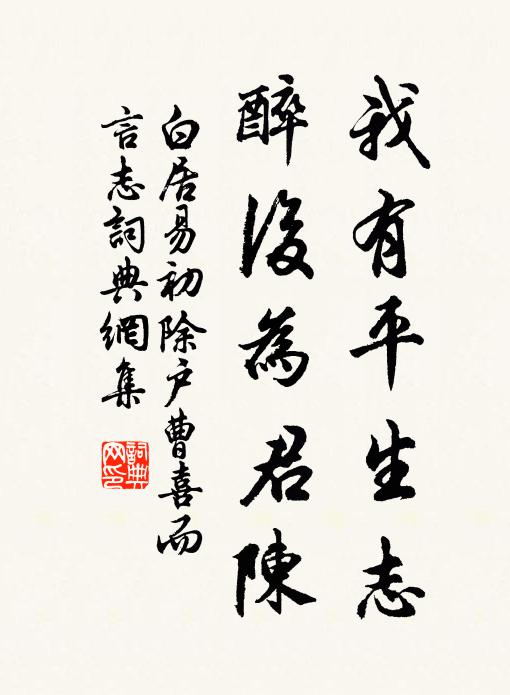 我有平生志
醉後為君陳
白居易初除戶曹喜而
言志詞典網集
詞典
網印